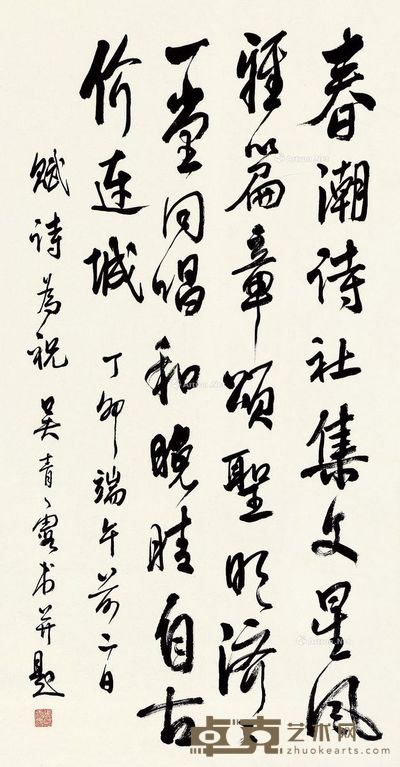 春潮诗社集文星风
雅篇章頌聖明济
一堂同唱和晚晴自古
价连城 丁卯端午前二日
赋诗為祝 吴青霞书并题
卓克艺术网
zhuokearts.com